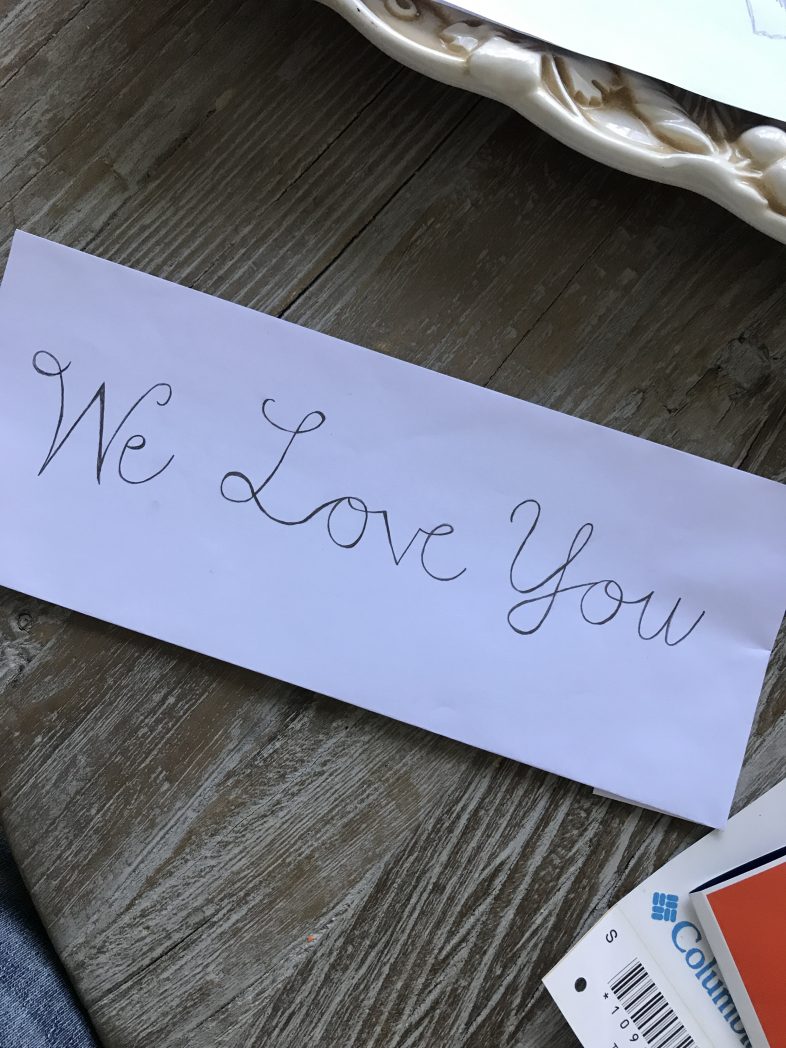 We Love You
Columbia
S
*109